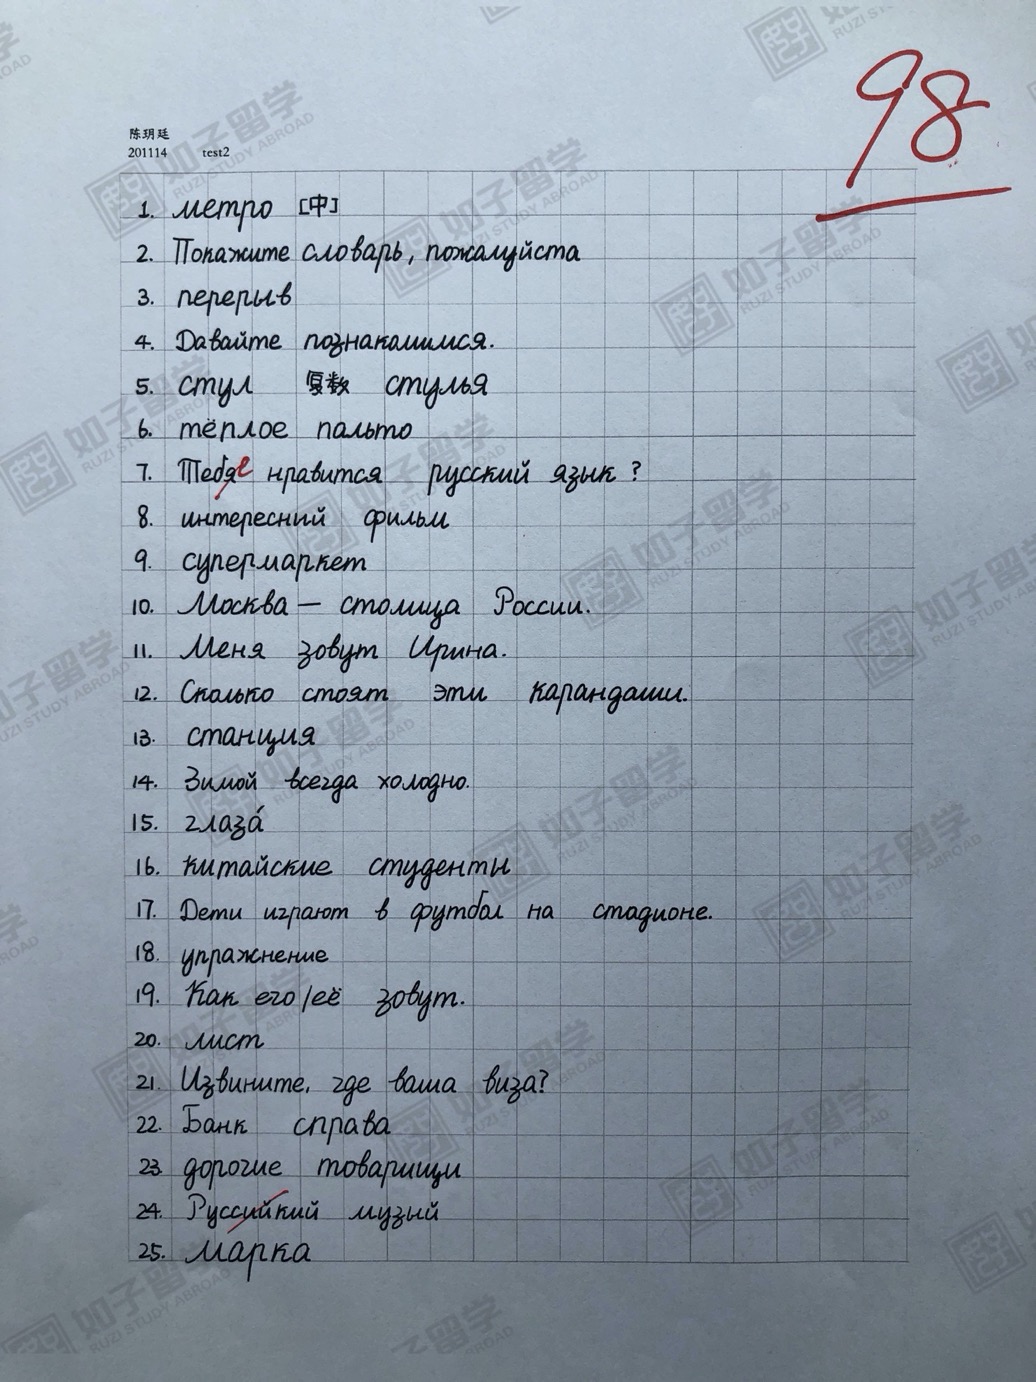 98
陈玥廷
201114 test2
1. метро [中]
2. Покажите словарь, пожалуйста
3. перерыв
4. Давайте познакомимся.
5. стул 复数 стулья
6. тёплое пальто
7. Тебяе нравится русский язык?
8. интересний фильм
9. супермаркет
10. Москва — столица России.
11. Меня зовут Ирина.
12. Сколько стоят эти карандаши.
13. станция
14. Зимой всегда холодно.
15. глаза́
16. китайские студенты
17. Дети играют в футбол на стадионе.
18. упражнение
19. Как его/её зовут.
20. лист
21. Извините, где ваша виза?
22. Банк справа
23. дорогие товарищи
24. Руссийкий музый
25. марка
如子留学
RUZI STUDY ABROAD